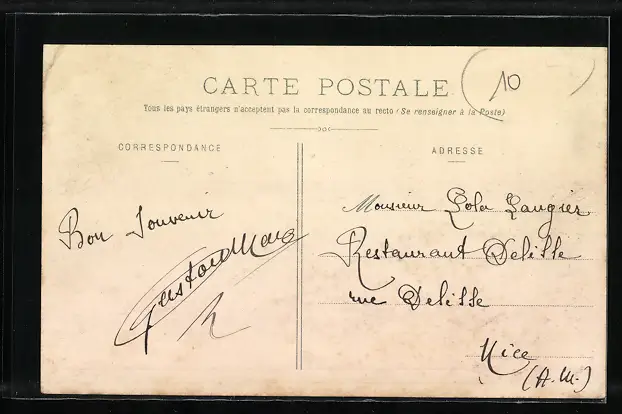 CARTE POSTALE
10
Tous les pays étrangers n'acceptent pas la correspondance au recto (Se renseigner à la Poste)
CORRESPONDANCE
Bon Souvenir
ADRESSE
Monsieur Lola Laugier
Restaurant Delisse
rue Delisse
Nice
(A.M.)